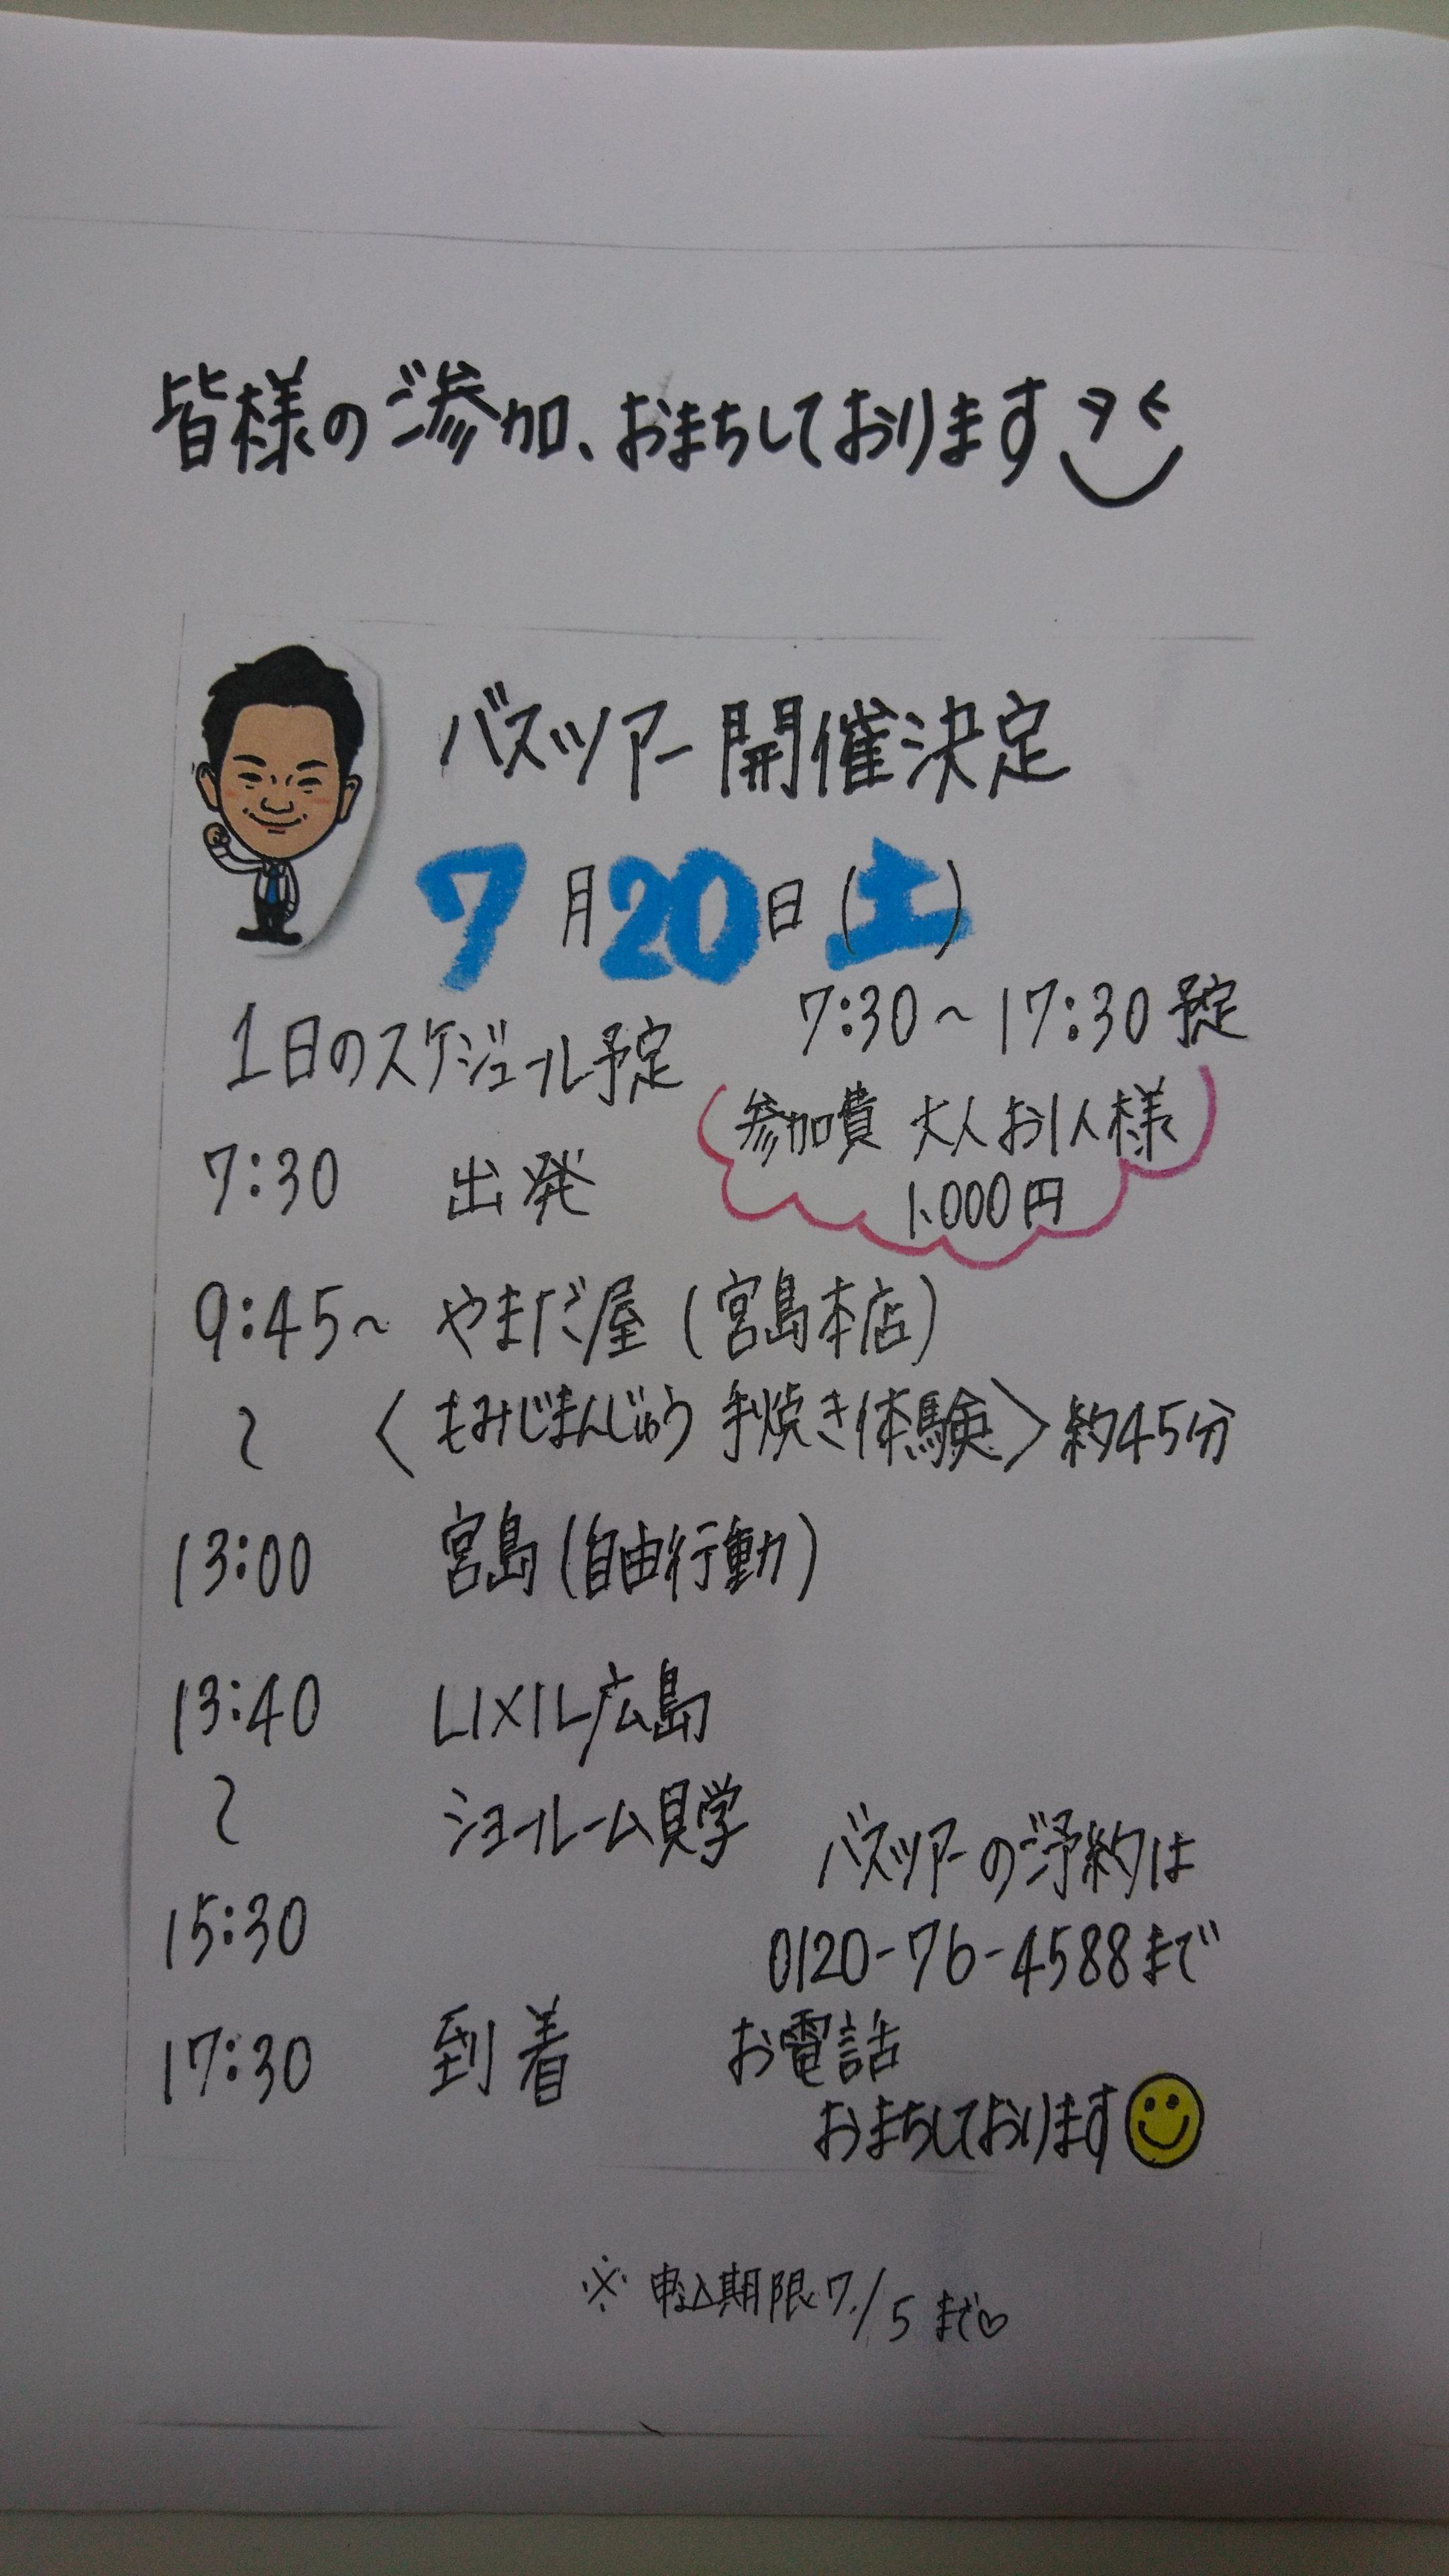 皆様のご参加、おまちしております
バスツアー開催決定
7月20日(土)
7:30~17:30予定
1日のスケジュール予定
参加費 大人お1人様
1,000円
7:30 出発
9:45~ やまだ屋(宮島本店)
〜 〈もみじまんじゅう 手焼き体験〉約45分
13:00 宮島(自由行動)
13:40 LIXIL広島
〜 ショールーム見学
15:30
17:30 到着
バスツアーのご予約は
0120-76-4588まで
お電話
おまちしております
※申込期限7/5まで♡